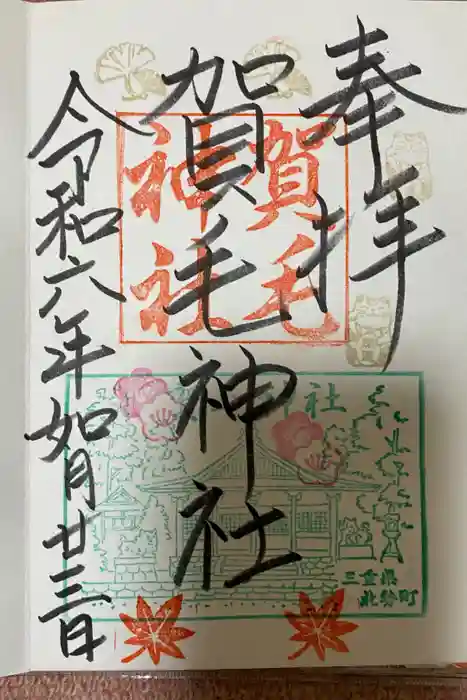 奉拝
賀毛神社
令和六年如月廿三日
賀毛
神社
社
三重県
北勢町